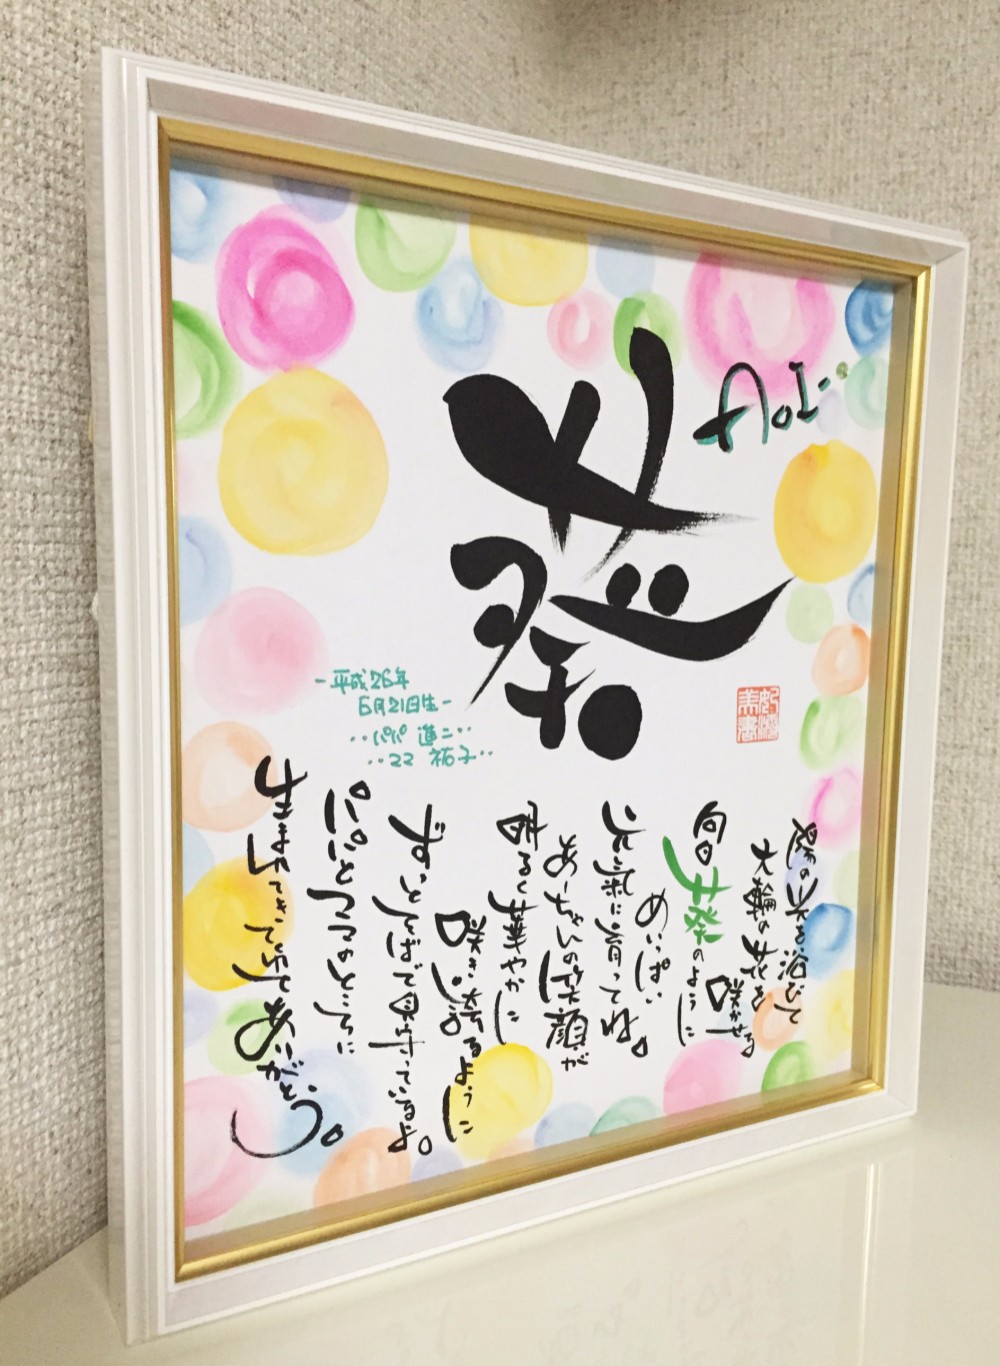 葵
Aoi
陽の光を浴びて
大輪の花を
咲かせる
向日葵のように
めいっぱい
元氣に育ってね。
あーちゃんの笑顔が
明るく華やかに
咲き誇るように
ずっとそばで見守っているよ。
パパとママのところに
生まれてきてくれてありがとう。
-平成26年
6月21日生-
‥パパ 進二‥
‥ママ 祐子‥